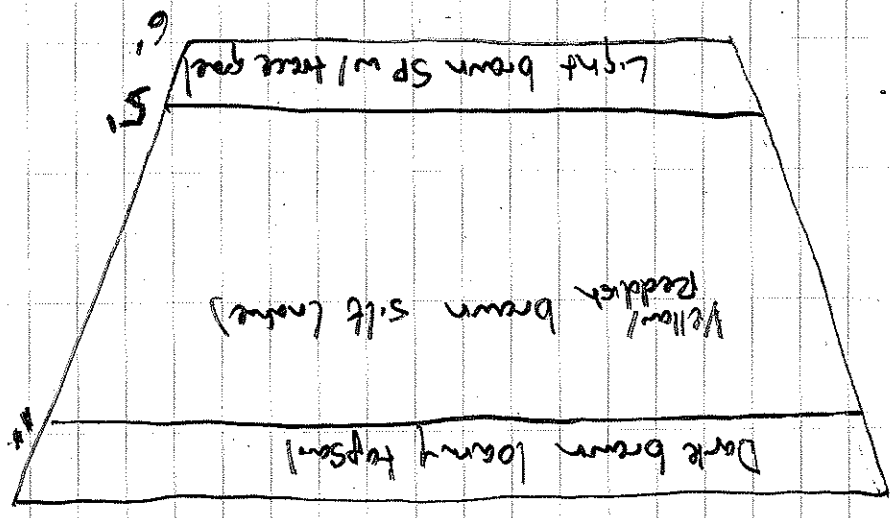 Dark brown loamy topsoil
Yellow/
Reddish brown silt (native)
5'
Light brown SP w/ trace gravel
6'